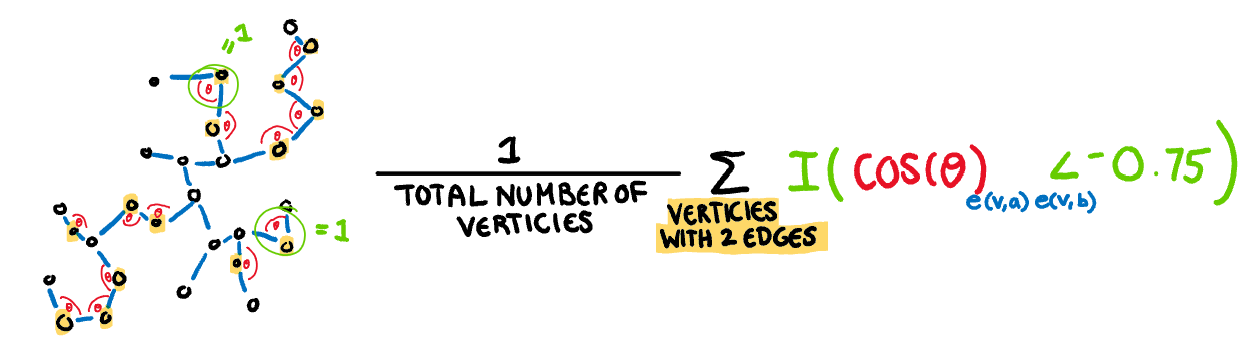 = 1
θ
θ
θ
θ
θ
θ
θ
θ
θ
θ
θ
θ
= 1
θ
θ
θ
θ
1
TOTAL NUMBER OF
VERTICIES
Σ
VERTICIES
WITH 2 EDGES
I(COS(θ) e(v,a) e(v,b) <-0.75)